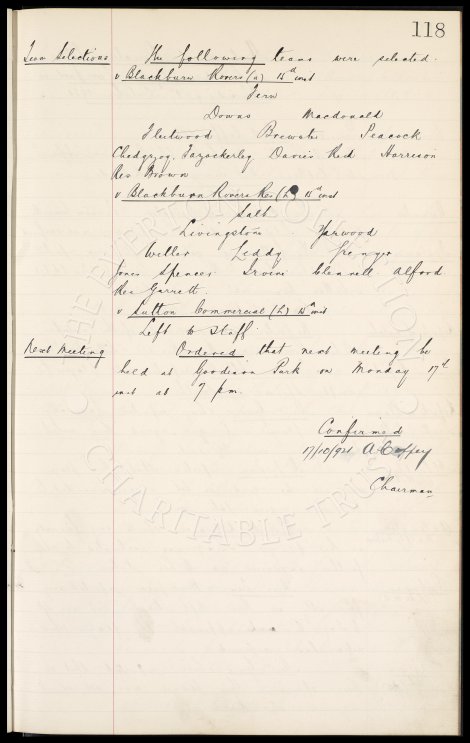 118
Team Selections The following teams were selected.
v Blackburn Rovers (a) 15th inst
Fern
Downs Macdonald
Fleetwood Brewster Peacock
Chedgzoy, Fazackerley Davies Reid Harrison
Res Brown
v Blackburn Rovers Res (h) 15th inst
Salt
Livingstone Yarwood
Weller Leddy Grenyer
Jones Spencer Irvine Blennell Alford
Res Garrett.
v Sutton Commercial (h) 15th inst
Left to Staff.
Next Meeting Ordered that next meeting be
held at Goodison Park on Monday 17th
inst at 7 pm.
Confirmed
17/10/921
Chairman
THE EVERTON COLLECTION
CHARITABLE TRUST